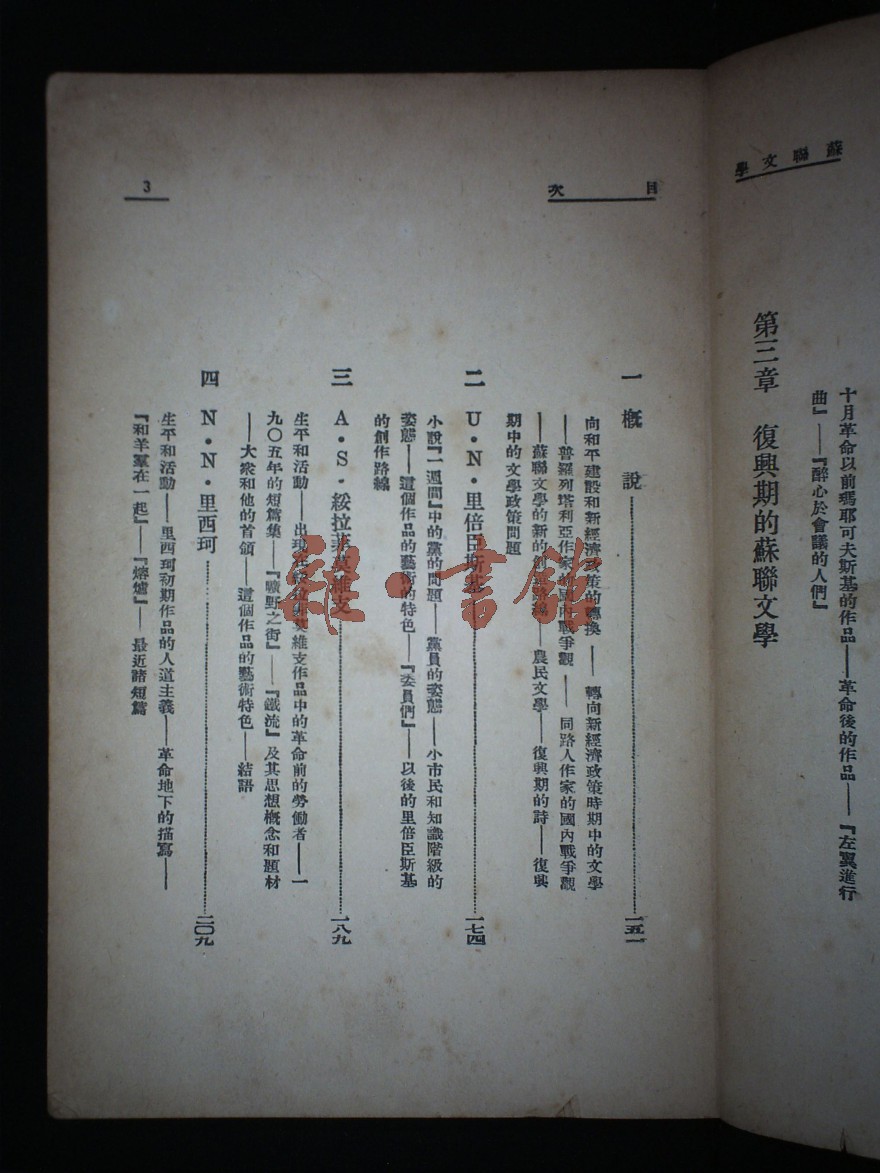 蘇聯文學
十月革命以前瑪耶可夫斯基的作品——革命後的作品——『左翼進行
曲』——『醉心於會議的人們』
第三章 復興期的蘇聯文學
目次
一 概說 一五一
向和平建設和新經濟政策的轉換——轉向新經濟政策時期中的文學
——普羅列塔利亞作家的國內戰爭觀——同路人作家的國內戰爭觀
——蘇聯文學的新的創作路線——農民文學——復興期的詩——復興
期中的文學政策問題
二 U·N·里倍臣斯基 一七四
小說『一週間』中的黨的問題——黨員的姿態——小市民和知識階級的
姿態——這個作品的藝術的特色——『委員們』——以後的里倍臣斯基
的創作路線
三 A·S·綏拉菲莫維支 一八九
生平和活動——出現在綏拉菲莫維支作品中的革命前的勞働者——一
九〇五年的短篇集——『曠野之街』——『鐵流』及其思想概念和題材
——大衆和他的首領——這個作品的藝術特色——結語
四 N·N·里西珂 二〇九
生平和活動——里西珂初期作品的人道主義——革命地下的描寫——
『和羊羣在一起』——『熔爐』——最近諸短篇
3
書館